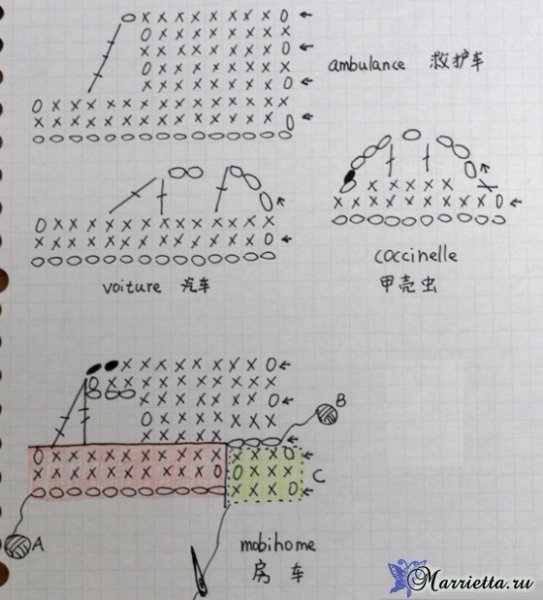 ambulance 救护车
coccinelle
甲壳虫
voiture 汽车
B
C
A
mobihome
房 车
Marrietta.ru